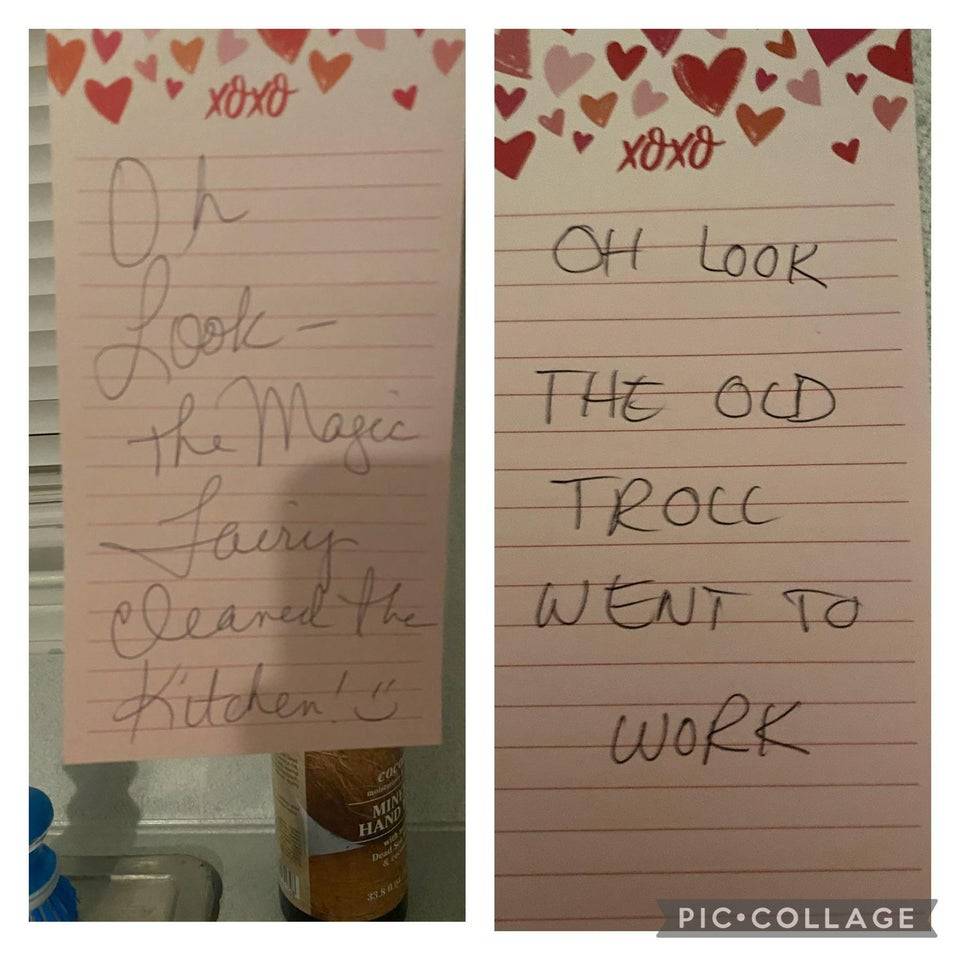 xoxo
Oh
Look -
the Magic
Fairy
cleaned the
Kitchen! :)
COCO
MIN
HAND
with
Dead S
& co
33.8 fl oz
xoxo
OH LOOK
THE OLD
TROLL
WENT TO
WORK
PIC•COLLAGE